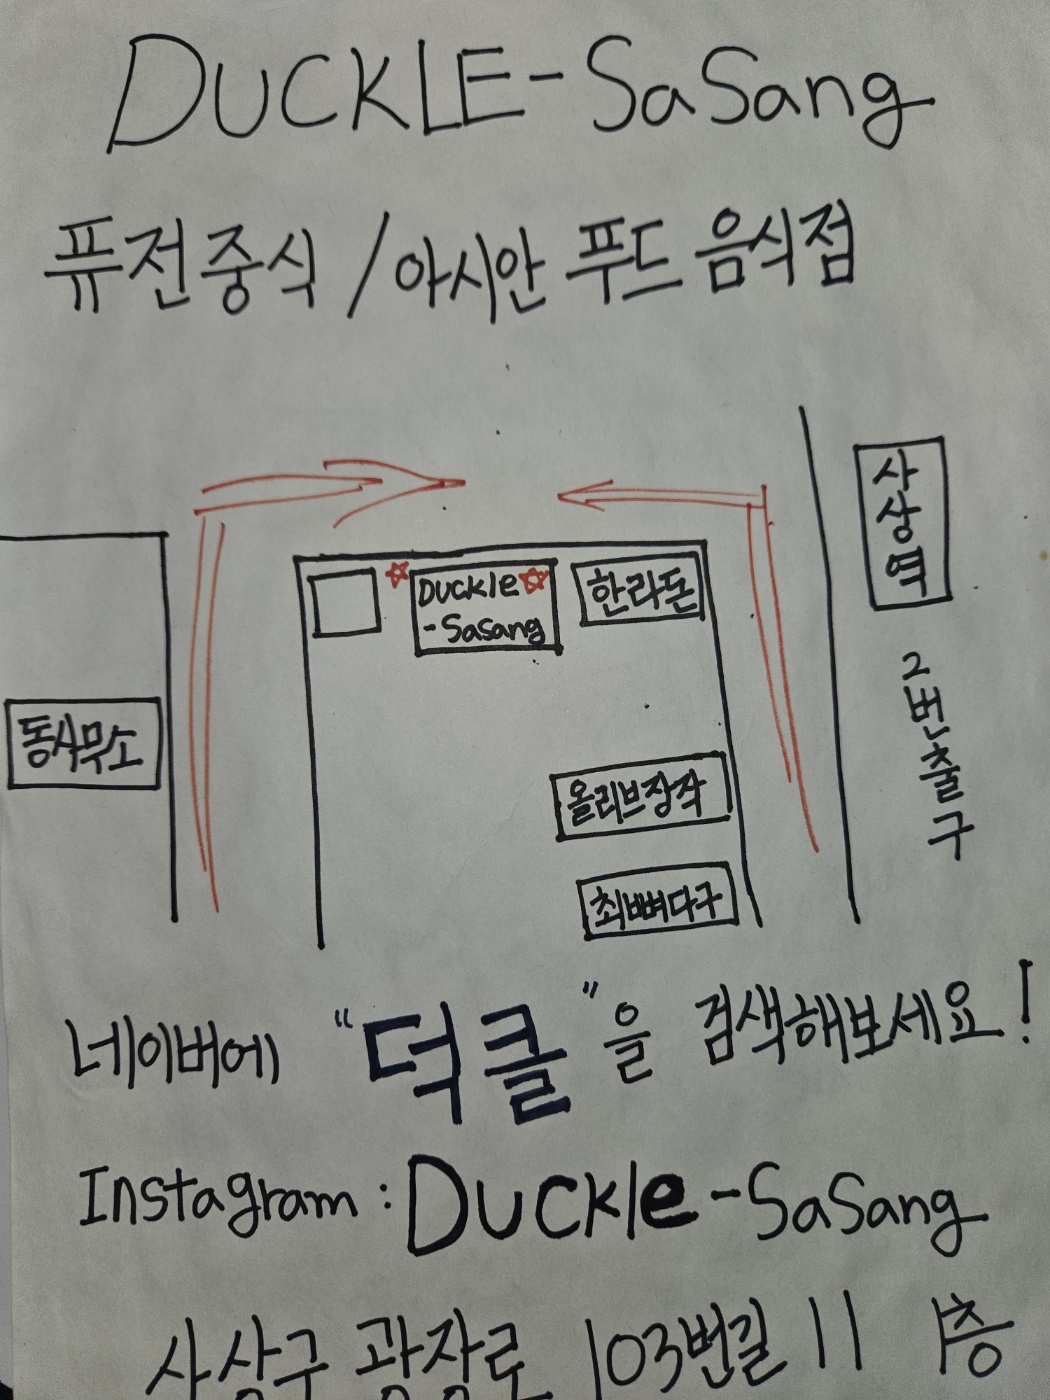 DUCKLE-SaSang
퓨전중식 / 아시안 푸드 음식점
사상역
2번출구
Duckle
-Sasang
한라돈
동사무소
올리브장작
최뼈다구
네이버에 “덕클”을 검색해보세요!
Instagram : Duckle-SaSang
사상구 광장로 103번길 11 1층